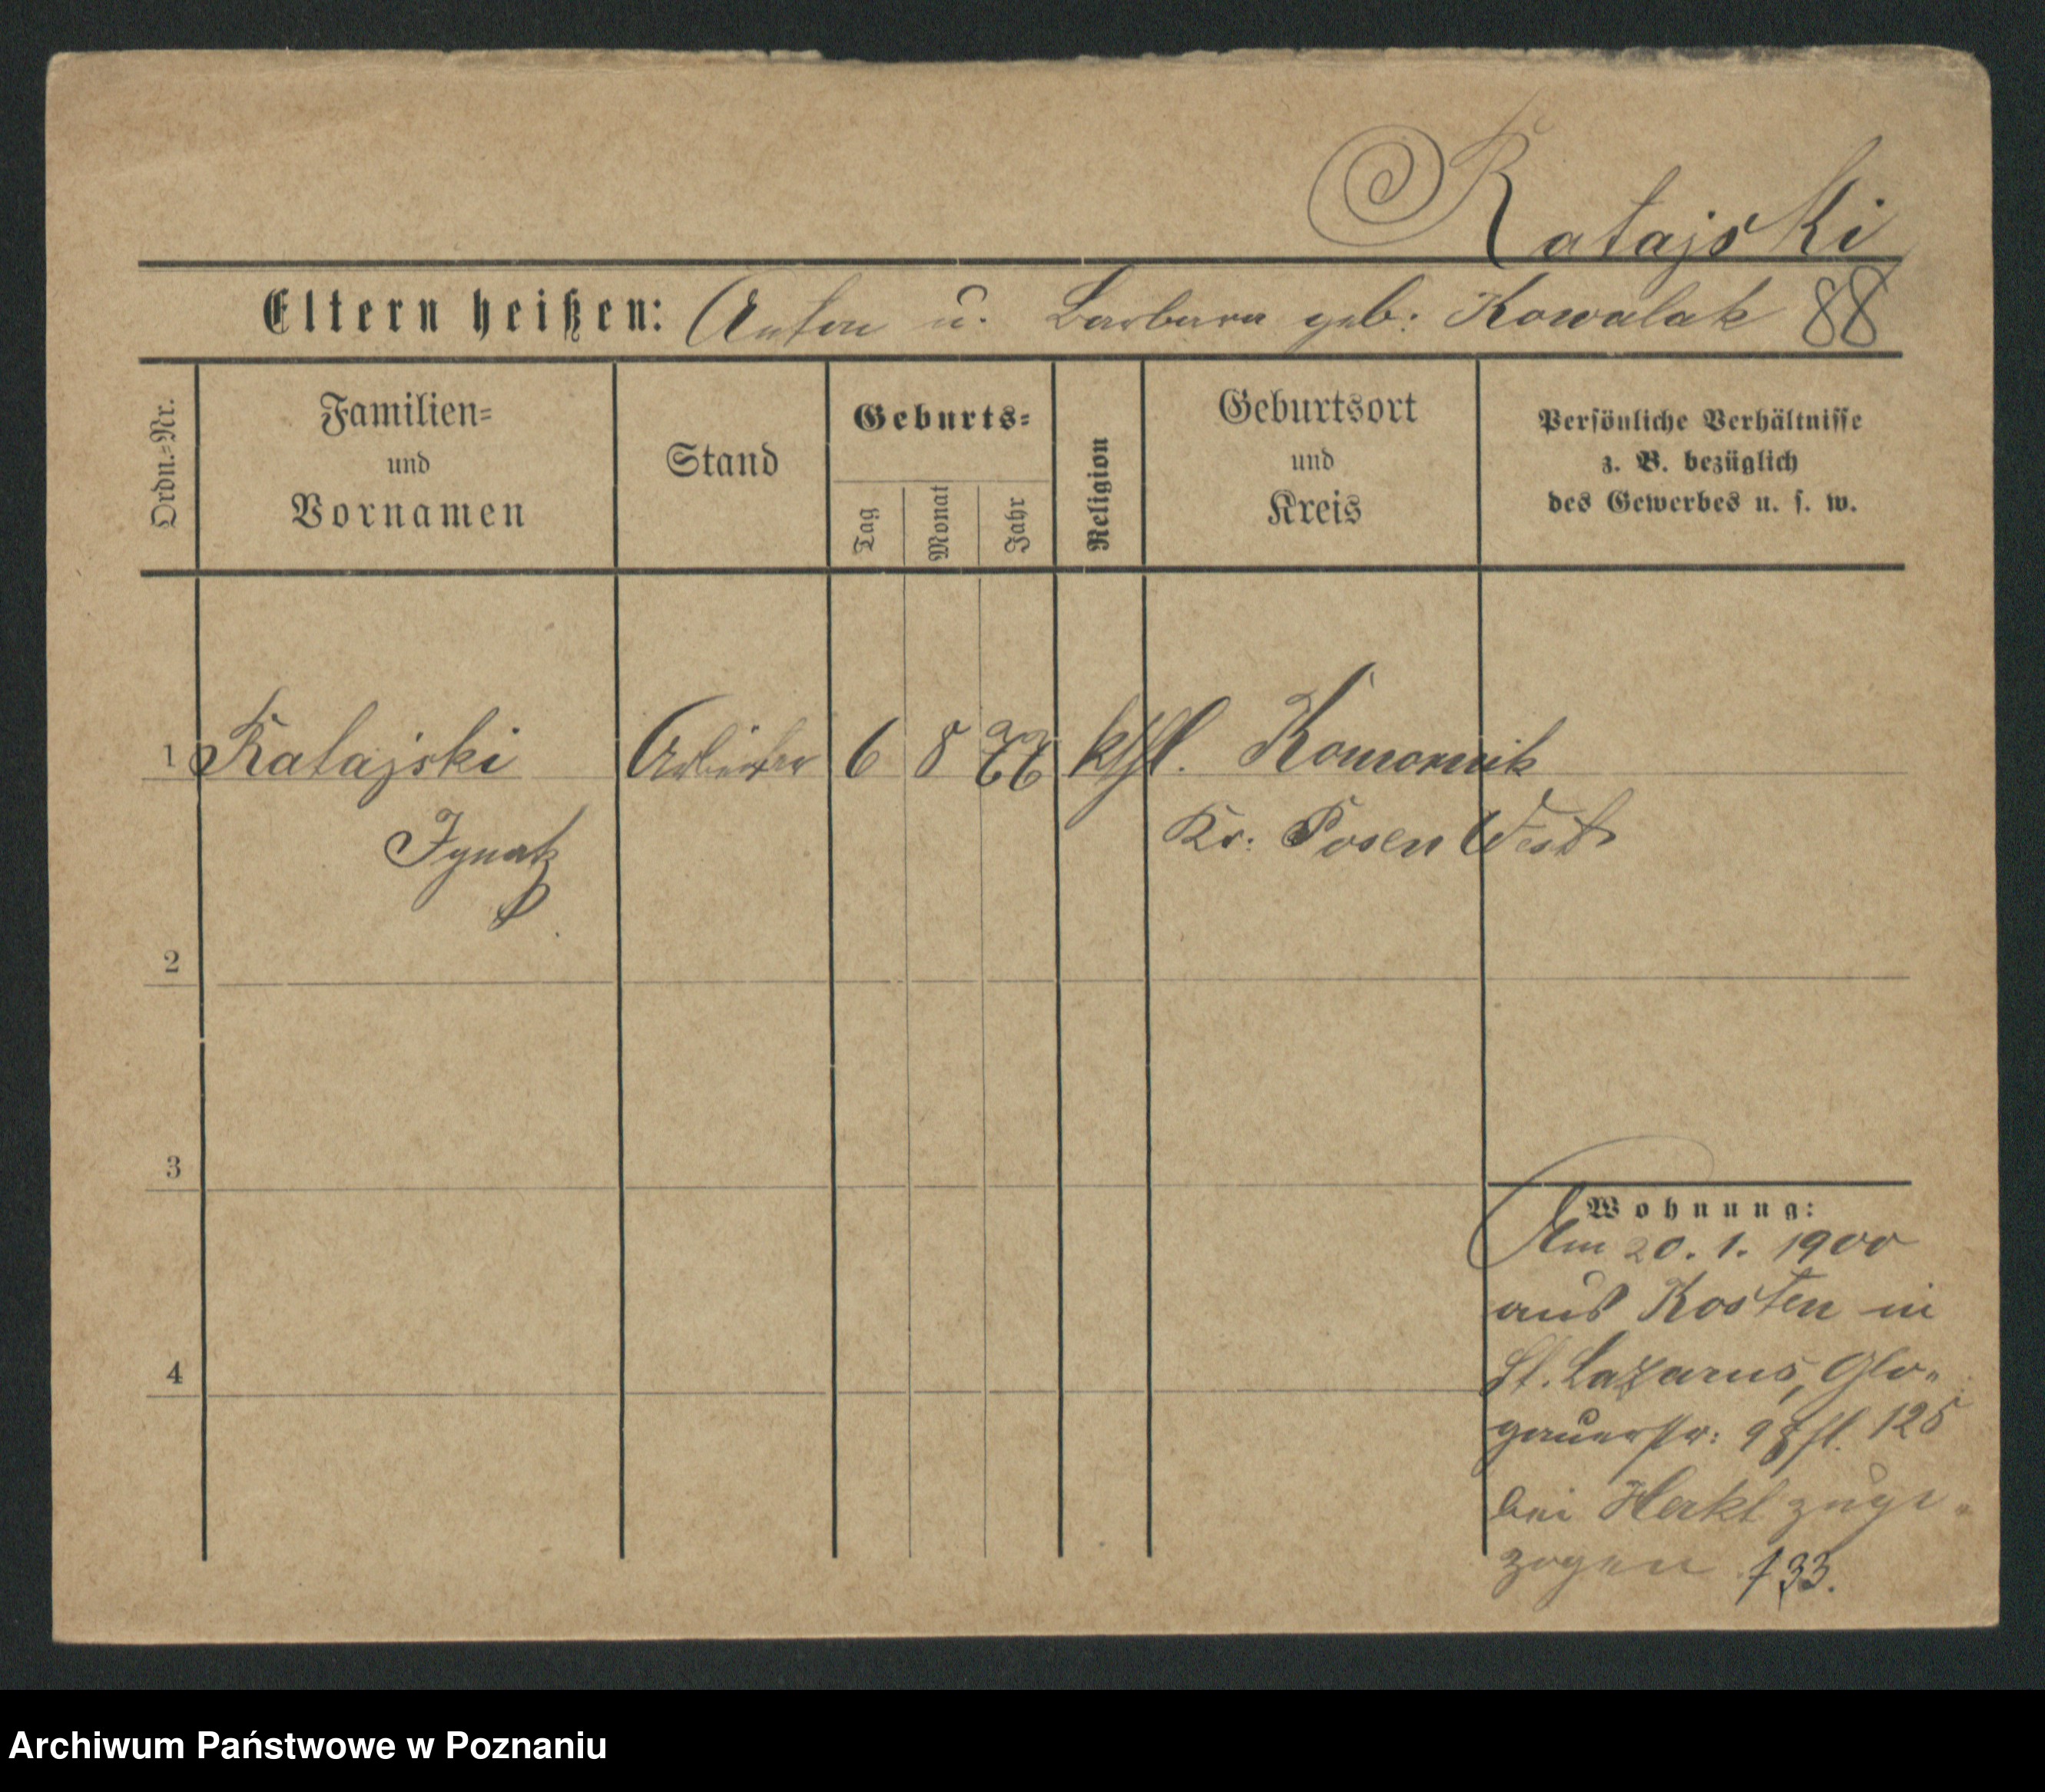 Ratajski
Eltern heißen: Anton u. Barbara geb: Kowalak 88
Ordn.=Nr.
Familien=
und
Vornamen
Stand
Geburts=
Tag
Monat
Jahr
Religion
Geburtsort
und
Kreis
Persönliche Verhältnisse
z. B. bezüglich
des Gewerbes u. s. w.
1 Ratajski Arbeiter 6 8 77 kthl. Komornik
Ignatz Kr: Posen West
2
3
4
Wohnung:
Am 20. 1. 1900
aus Kosten in
St. Lazarus, Glo-
gauerstr: 125
bei zuge-
zogen 33.
Archiwum Państwowe w Poznaniu